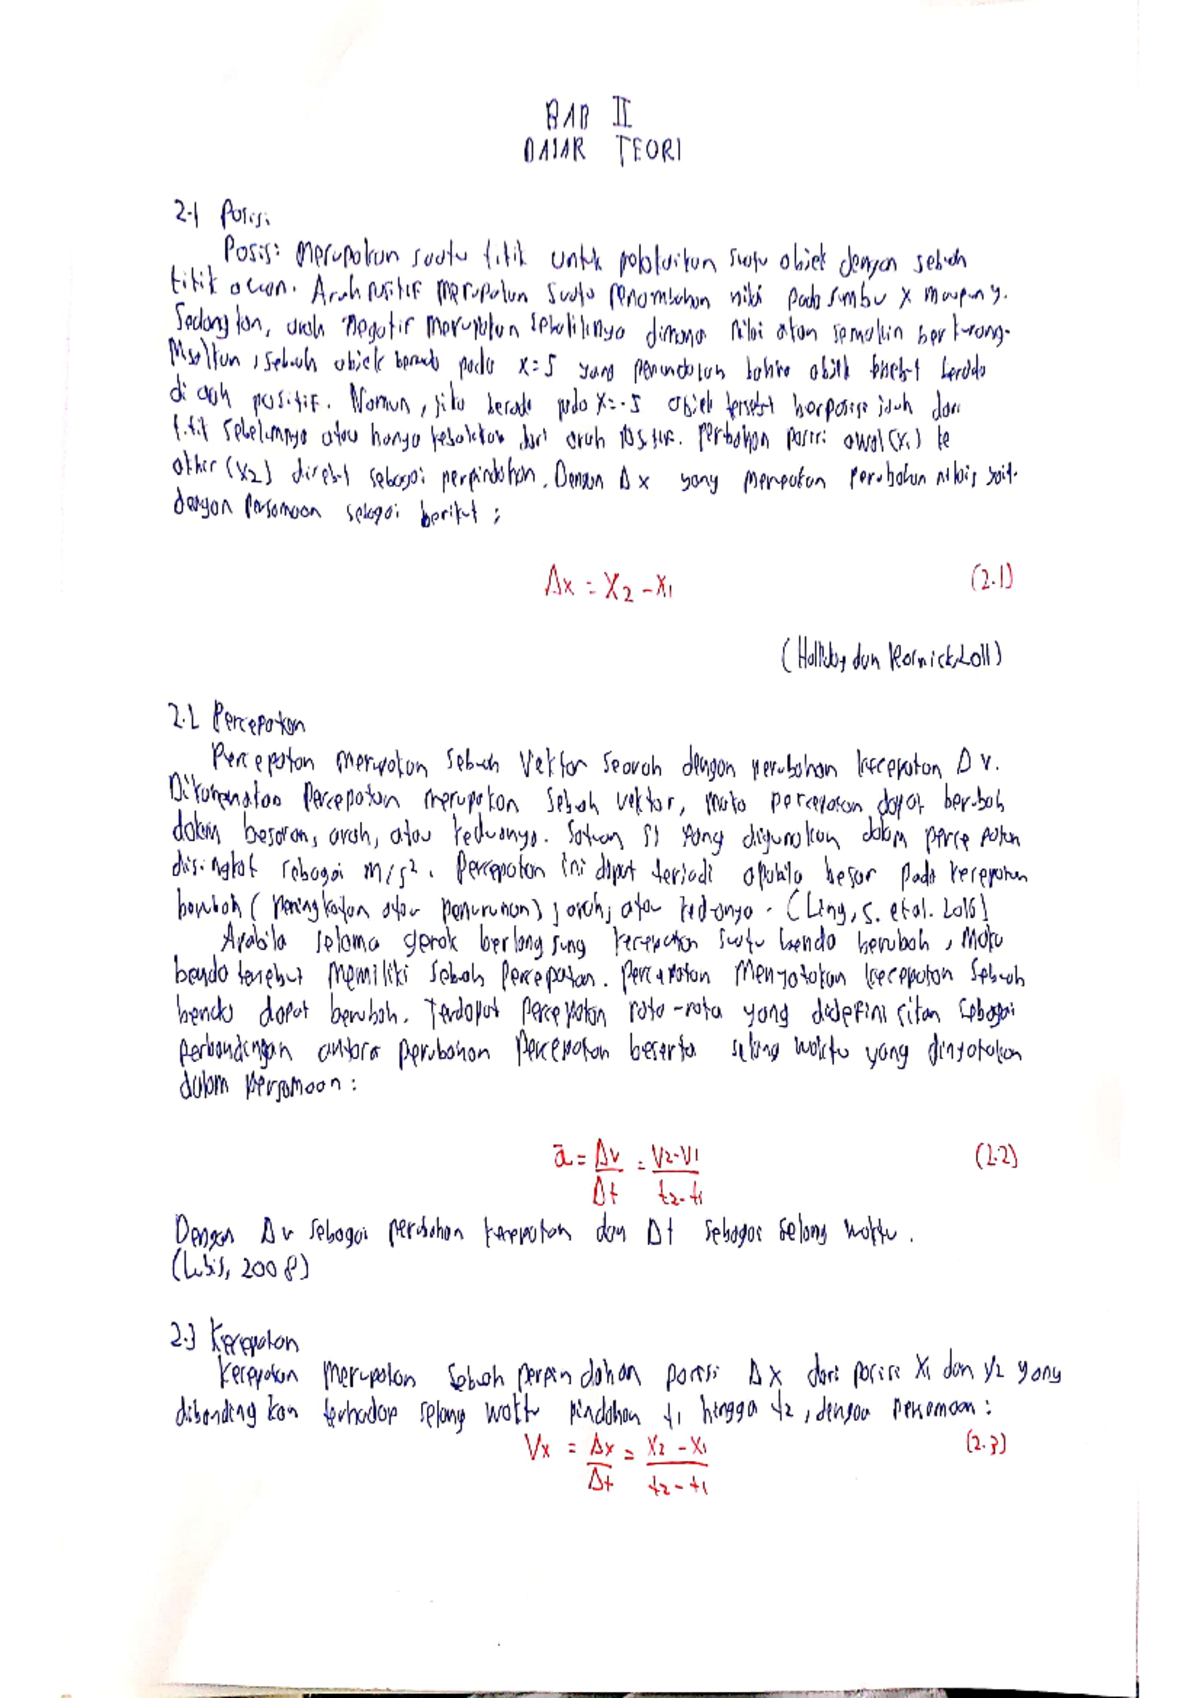 BAB II
DASAR TEORI
2.1 Posisi
Posisi merupakan suatu titik untuk suatu objek dengan sebuah
titik acuan. Arah positif merupakan suatu penambahan nilai pada sumbu x maupun y.
Sedangkan, arah negatif merupakan sebaliknya dimana nilai akan semakin berkurang.
Misalkan, sebuah objek berada pada x=5 yang menandakan bahwa objek tersebut berada
di arah positif. Namun, jika berada pada x=-5 objek tersebut berposisi jauh dari
titik sebelumnya atau hanya kebalikan dari arah positif. Perubahan posisi awal (x1) ke
akhir (x2) disebut sebagai perpindahan. Dengan Δx yang merupakan perubahan nilai,
dengan persamaan sebagai berikut :
Δx = x2 - x1 (2.1)
(Halliday dan
2.2 Percepatan
Percepatan merupakan sebuah vektor searah dengan perubahan kecepatan Δv.
Dikarenakan percepatan merupakan sebuah vektor, maka percepatan dapat berubah
dalam besaran, arah, atau keduanya. Satuan SI yang digunakan dalam percepatan
disingkat sebagai m/s². Percepatan ini dapat terjadi apabila besar pada kecepatan
berubah (peningkatan atau penurunan), arah, atau keduanya. (Ling, S. et al. 2016)
Apabila selama gerak berlangsung kecepatan suatu benda berubah, maka
benda tersebut memiliki sebuah percepatan. Percepatan menyatakan kecepatan sebuah
benda dapat berubah. Terdapat percepatan rata-rata yang didefinisikan sebagai
perbandingan antara perubahan percepatan beserta selang waktu yang dinyatakan
dalam persamaan :
ā = Δv/Δt = v2-v1/t2-t1 (2.2)
Dengan Δv sebagai perubahan kecepatan dan Δt sebagai selang waktu.
(Lubis, 2008)
2.3 Kecepatan
Kecepatan merupakan sebuah perpindahan posisi Δx dari posisi x1 dan x2 yang
dibandingkan terhadap selang waktu pindahan t1 hingga t2, dengan persamaan :
Vx = Δx/Δt = x2 - x1/t2 - t1 (2.3)